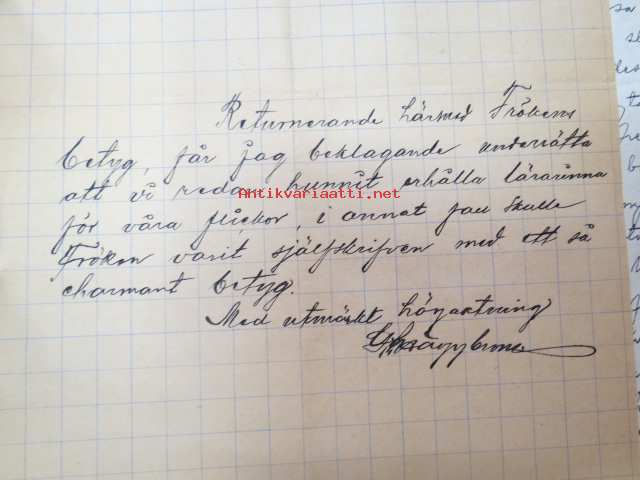 Returnerande härmed Frökens
betyg, får jag beklagande underrätta
att vi redan hunnit erhålla lärarinna
Antikvariaatti.net
för våra flickor, i annat fall skulle
Fröken varit självskrifven med ett så
charmant betyg.
Med utmärkt högaktning